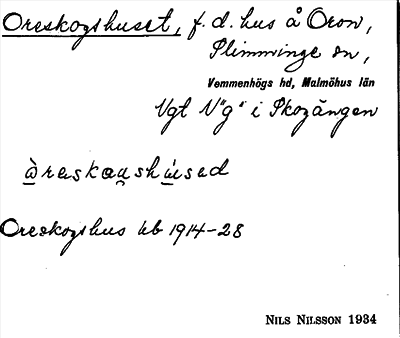 Oreskogshuset, f. d. hus å Oron,
Slimminge sn,
Vemmenhögs hd, Malmöhus län
Vgt N"g" i Skogången
òreskau̯shúsed
Oreskogshus kb 1914-28
NILS NILSSON 1934